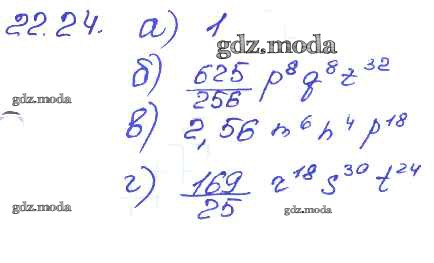 22.24. а) 1
gdz.moda
б) 625/256 p⁸ q⁸ z³²
gdz.moda
в) 2,56 m⁶ n⁴ p¹⁸
г) 169/25 r¹⁸ s³⁰ t²⁴
gdz.moda gdz.moda